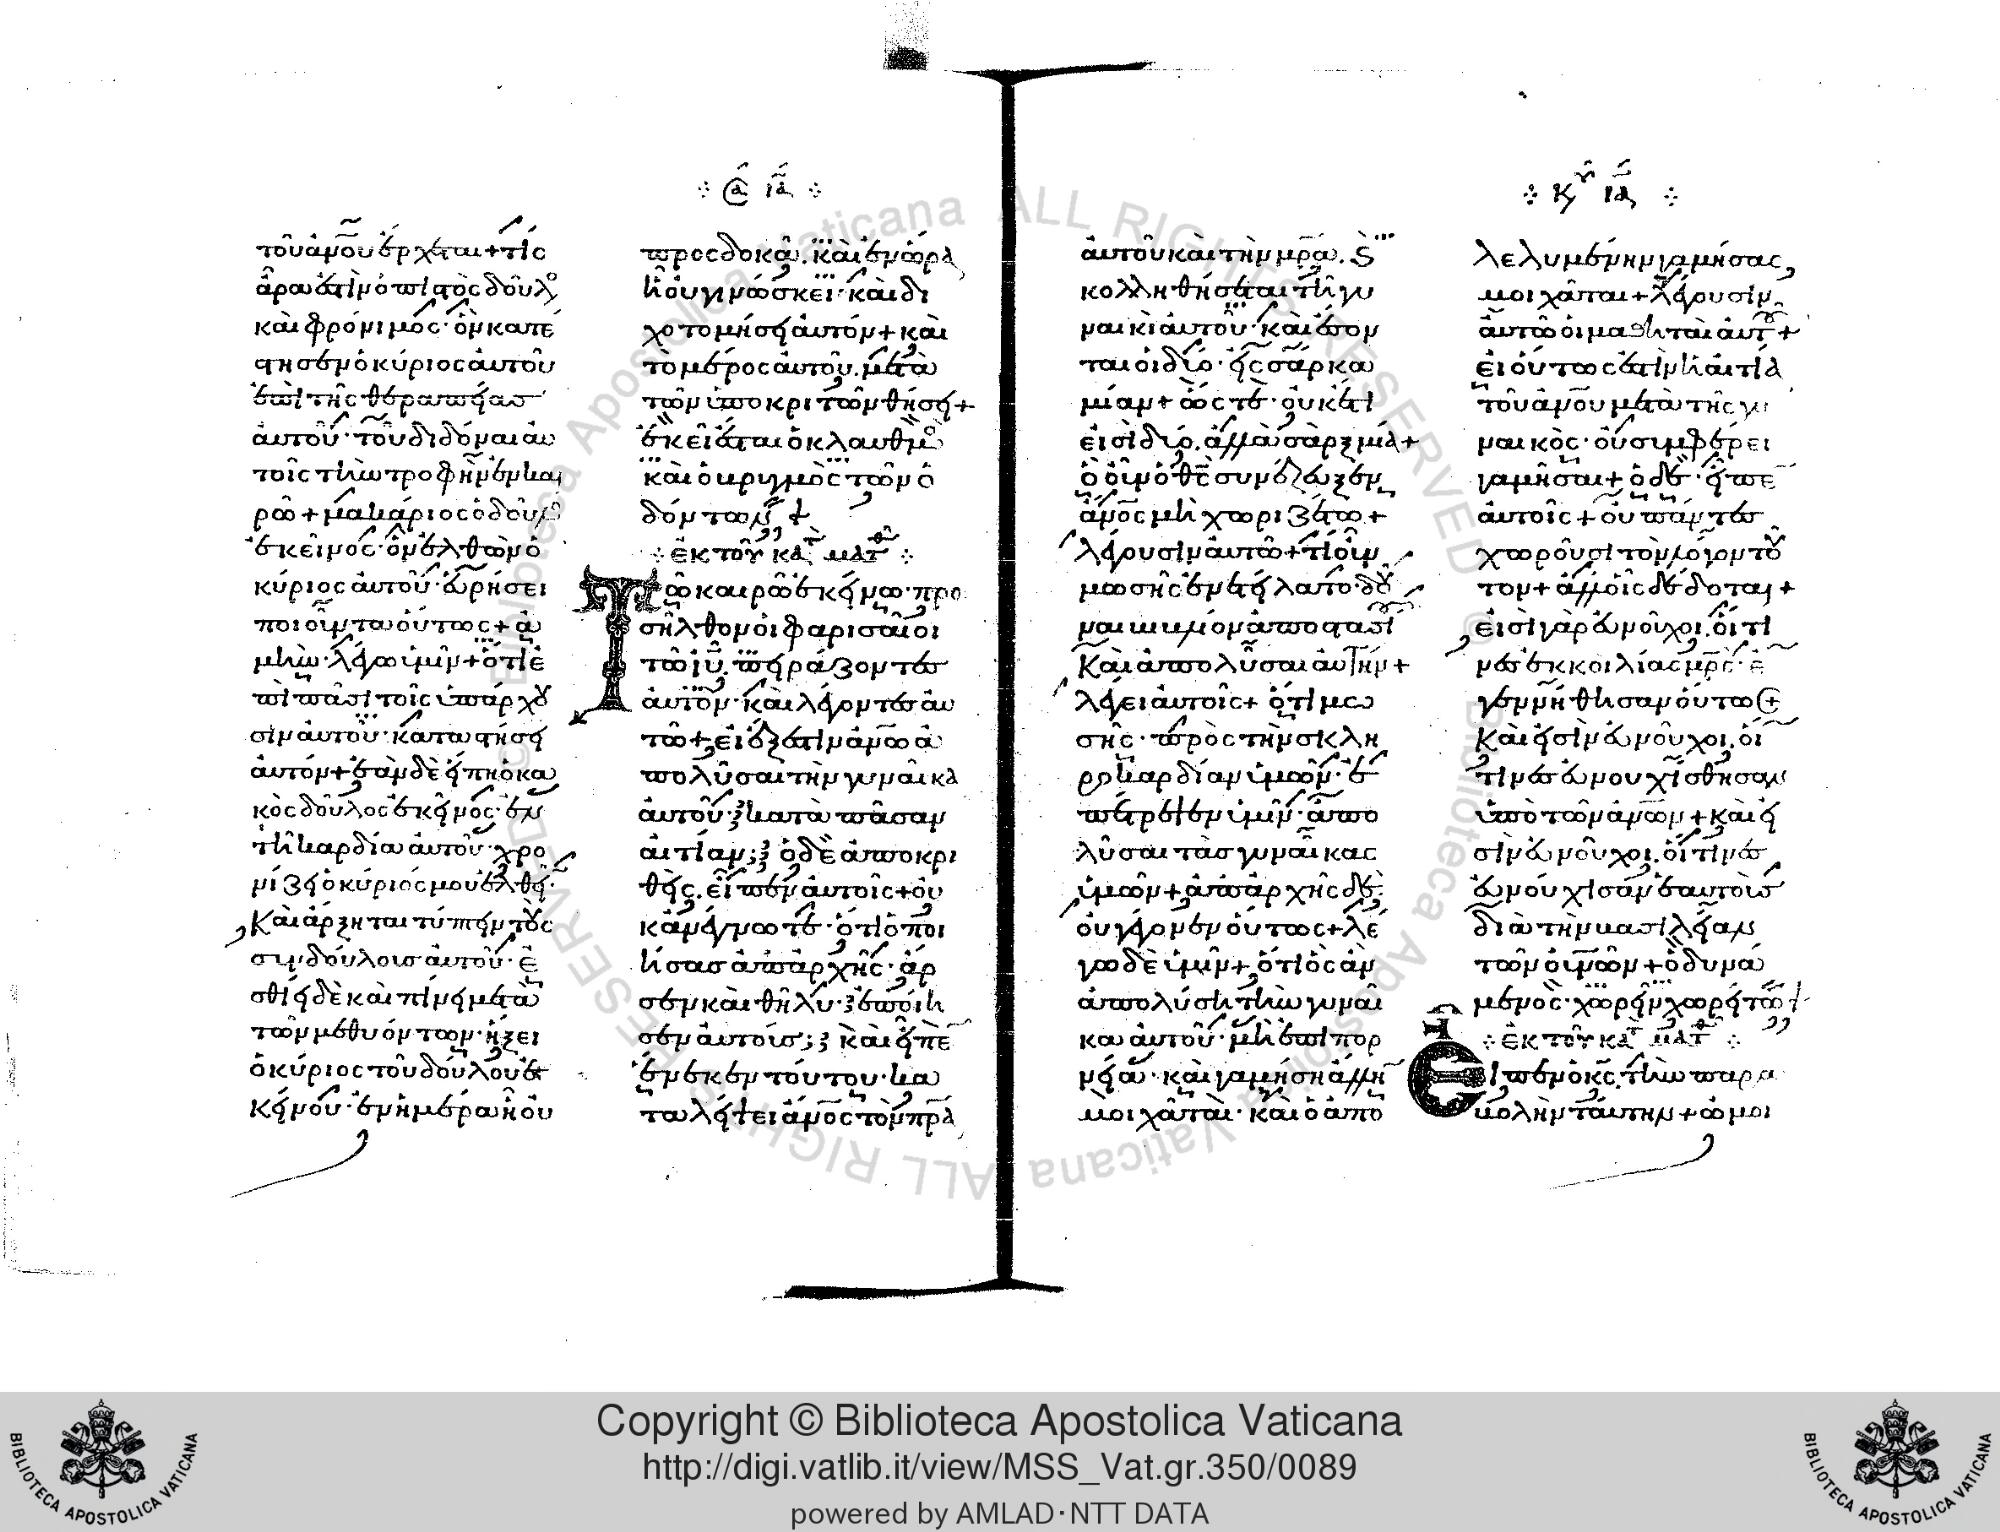 τοῦ ἀνου ἔρχεται + τίς
ἄρα ἐστὶν ὁ πιστὸς δοῦλο
καὶ φρόνιμος · ὃν κατέ
στησεν ὁ κύριος αὐτοῦ
ἐπὶ τῆς θεραπείας
αὐτοῦ · τοῦ διδόναι αὐ
τοῖς τὴν τροφὴν ἐν και
ρῶ + μακάριος ὁ δοῦλο
ἐκεῖνος · ὃν ἐλθὼν ὁ
κύριος αὐτοῦ · εὑρήσει
ποιοῦντα οὕτως + ἀ
μὴν · λέγω ὑμῖν + ὅτι ἐ
πὶ πᾶσι τοῖς ὑπάρχου
σιν αὐτοῦ · καταστήσει
αὐτόν + ἐὰν δὲ εἴπη ὁ κα
κὸς δοῦλος ἐκεῖνος · ἐν
τῆ καρδία αὐτοῦ · χρο
νίζει ὁ κύριός μου ἐλθεῖ ·
Καὶ ἄρξηται τύπτειν τοὺς
συνδούλους αὐτοῦ · ἐ
σθίει δὲ καὶ πίνει μετὰ
τῶν μεθυόντων · ἥξει
ὁ κύριος τοῦ δούλου ἐ
κείνου · ἐν ἡμέρα ἧ οὐ
α ια
προςδοκᾶ . καὶ ἐν ὥρα
ἧ οὐ γινώσκει · καὶ δι
χοτομήσει αὐτόν + καὶ
τὸ μέρος αὐτοῦ . μετὰ
τῶν ὑποκριτῶν θήσει +
ἐκεῖ ἔσται ὁ κλαυθμὸ
καὶ ὁ βρυγμὸς τῶν ὀ
δόντων +
ἐκ τοῦ κατ ματθ
Τῶ καιρῶ ἐκείνω · προ
σῆλθον οἱ φαρισαῖοι
τῶ ιυ . πειράζοντες
αὐτόν · καὶ λέγοντες αὐ
τῶ + εἰ ἔξεστιν ἀνω ἀ
πολῦσαι τὴν γυναῖκα
αὐτοῦ · κατὰ πᾶσαν
αἰτίαν ; ὁ δὲ ἀποκρι
θεὶς . εἶπεν αὐτοῖς + οὐ
κ ἀνέγνωτε · ὅτι ὁ ποι
ήσας ἀπ ἀρχῆς · ἄρ
σεν καὶ θῆλυ · ἐποίη
σεν αὐτούς ; καὶ εἶπε
ἕνεκεν τούτου · κα
ταλείψει ανος τὸν πρα
κυ ια
αὐτοῦ καὶ τὴν μρα . καὶ
κολληθήσεται τῆ γυ
ναικὶ αὐτοῦ · καὶ ἔσον
ται οἱ δύο · εἰς σάρκα
μίαν + ὥςτε · οὐκέτι
εἰσὶ δύο . ἀλλὰ σὰρξ μία +
ὃ οὖν ὁ θς συνέζευξεν
ανος μὴ χωριζέτω +
λέγουσιν αὐτῶ + τί οὖν
μωσῆς ἐνετείλατο · δοῦ
ναι βιβλίον ἀποστασί
Καὶ ἀπολῦσαι αὐτήν +
λέγει αὐτοῖς + ὅτι μω
σῆς · πρὸς τὴν σκλη
ροκαρδίαν ὑμῶν · ἐ
πέτρεψεν ὑμῖν · ἀπο
λῦσαι τὰς γυναῖκας
ὑμῶν + ἀπ ἀρχῆς δὲ ·
οὐ γέγονεν οὕτως + λέ
γω δὲ ὑμῖν + ὅτι ὃς ἂν
ἀπολύση τὴν γυναῖ
κα αὐτοῦ · μὴ ἐπὶ πορ
νεία · καὶ γαμήση ἄλλη
μοιχᾶται · καὶ ὁ ἀπο
λελυμένην γαμήσας
μοιχᾶται + λέγουσιν
αὐτῶ οἱ μαθηταὶ αὐτ +
εἰ οὕτως ἐστὶν ἡ αἰτία
τοῦ ανου μετὰ τῆς γυ
ναικός · οὐ συμφέρει
γαμῆσαι + ὁ δὲ · εἶπε
αὐτοῖς + οὐ πάντες
χωροῦσι τὸν λόγον τοῦ
τον + ἀλλ οἷς δέδοται +
εἰσὶ γὰρ εὐνοῦχοι . οἵ τι
νες ἐκ κοιλίας μρς · ἐ
γεννήθησαν οὕτως
Καὶ εἰσὶν εὐνοῦχοι . οἵ
τινες εὐνουχίσθησαν
ὑπὸ τῶν ανων + καὶ εἰ
σὶν εὐνοῦχοι . οἵτινες
εὐνούχισαν ἑαυτοὺς
διὰ τὴν βασιλείαν
τῶν ουνων + ὁ δυνά
μενος · χωρεῖν χωρείτω +
ἐκ τοῦ κατ ματθ
Εἶπεν ὁ κς . τὴν παρα
βολὴν ταύτην + ὡμοι
Copyright © Biblioteca Apostolica Vaticana
http://digi.vatlib.it/view/MSS_Vat.gr.350/0089
powered by AMLAD·NTT DATA